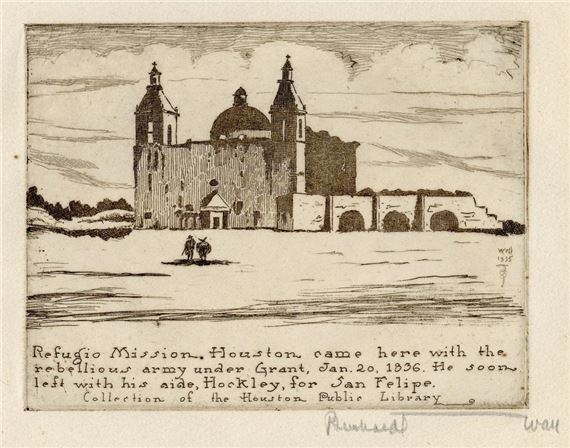 Wall
1935
Refugio Mission. Houston came here with the
rebellious army under Grant, Jan. 20, 1836. He soon
left with his aide, Hockley, for San Felipe.
Collection of the Houston Public Library
Bernhardt Wall